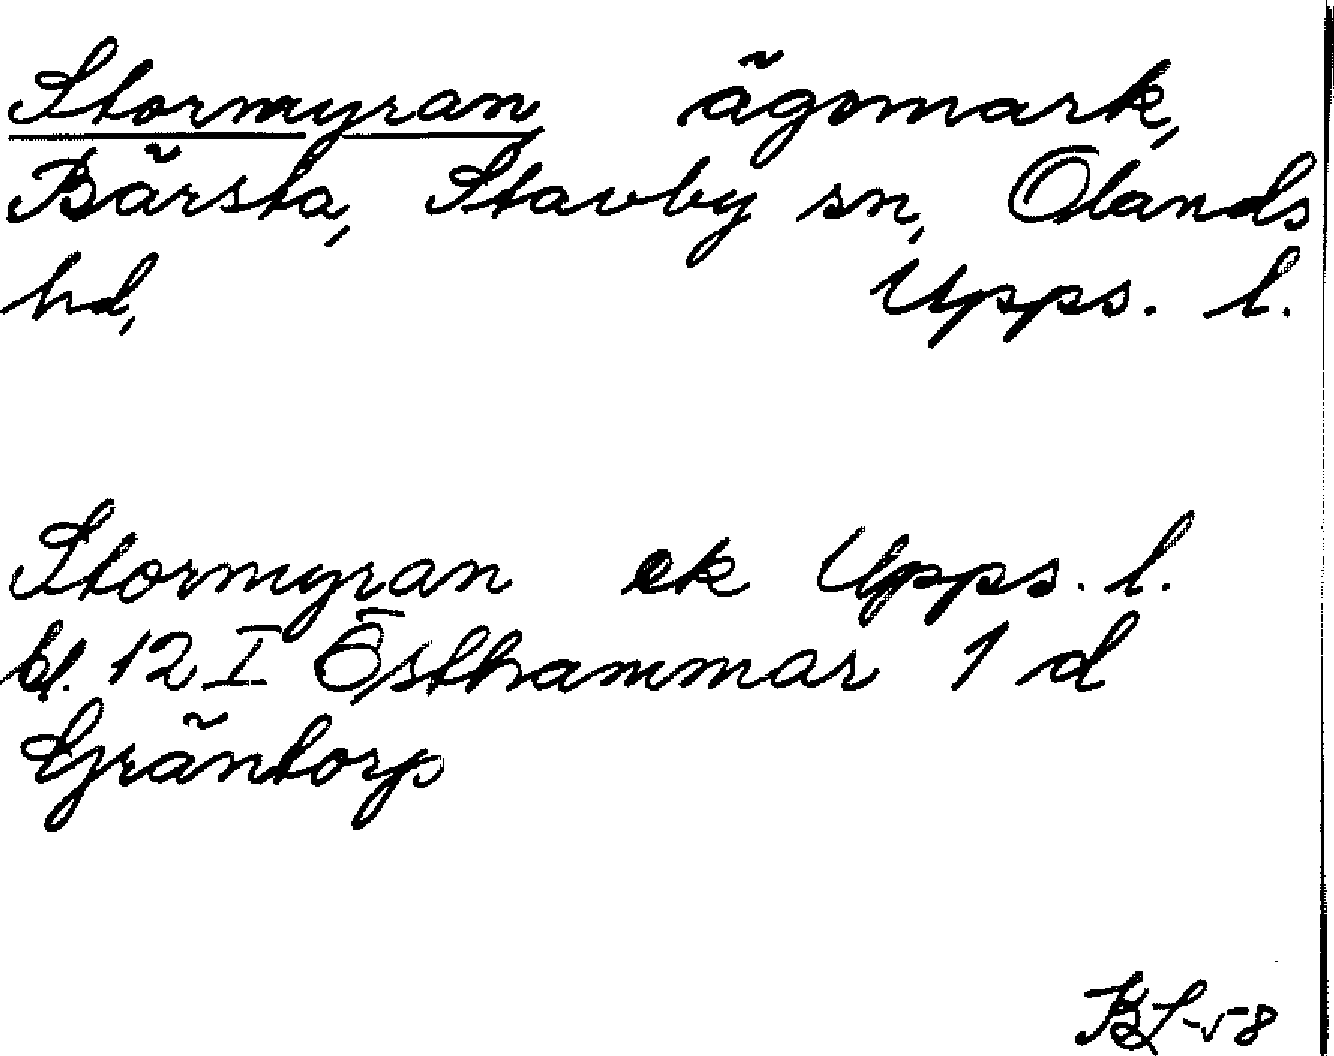 Stormyran ägomark,
Bärsta, Stavby sn, Ölands
hd, Upps. l.
Stormyran ek Upps. l.
bl. 12 I Östhammar 1 d
Gräntorp